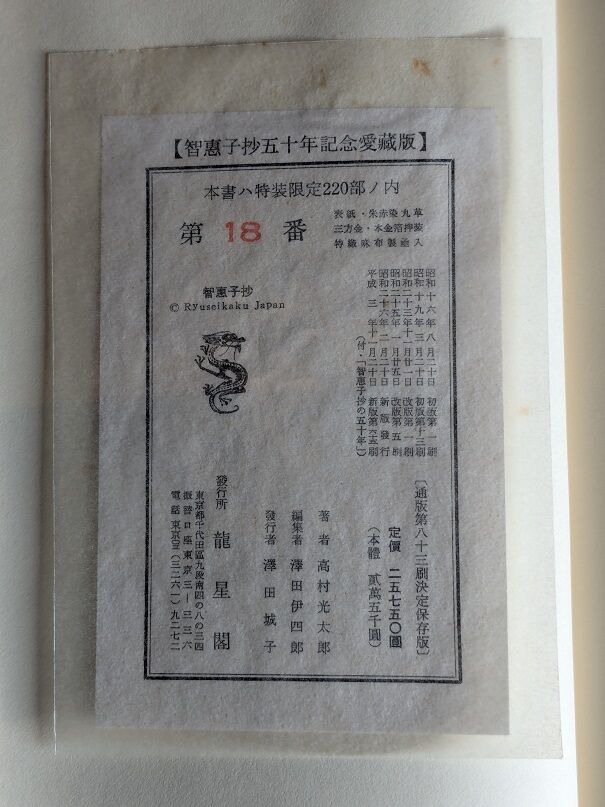 【智惠子抄五十年記念愛藏版】
本書ハ特装限定220部ノ内
第 18 番
表紙・朱赤染丸革
三方金・本金箔押装
特織麻布製帙入
昭和十六年八月二十日 初版第一刷
昭和十九年三月二十日 初版第十三刷
昭和二十三年十一月廿一日 改版第一刷
昭和二十五年一月廿五日 改版第五刷
昭和二十六年二月二十日 新版發行
平成三年十一月二十日 新版第六五刷
(付・「智惠子抄の五十年」)
智惠子抄
© Ryuseikaku Japan
〔通版第八十三刷決定保存版〕
定價 二五七五〇圓
(本體 貳萬五千圓)
著者 高村光太郎
編集者 澤田伊四郎
發行者 澤田城子
發行所 龍星閣
東京都千代田區九段南四の八の三四
振替口座東京三―三三六
電話 東京〇三(三二六一)九二七二